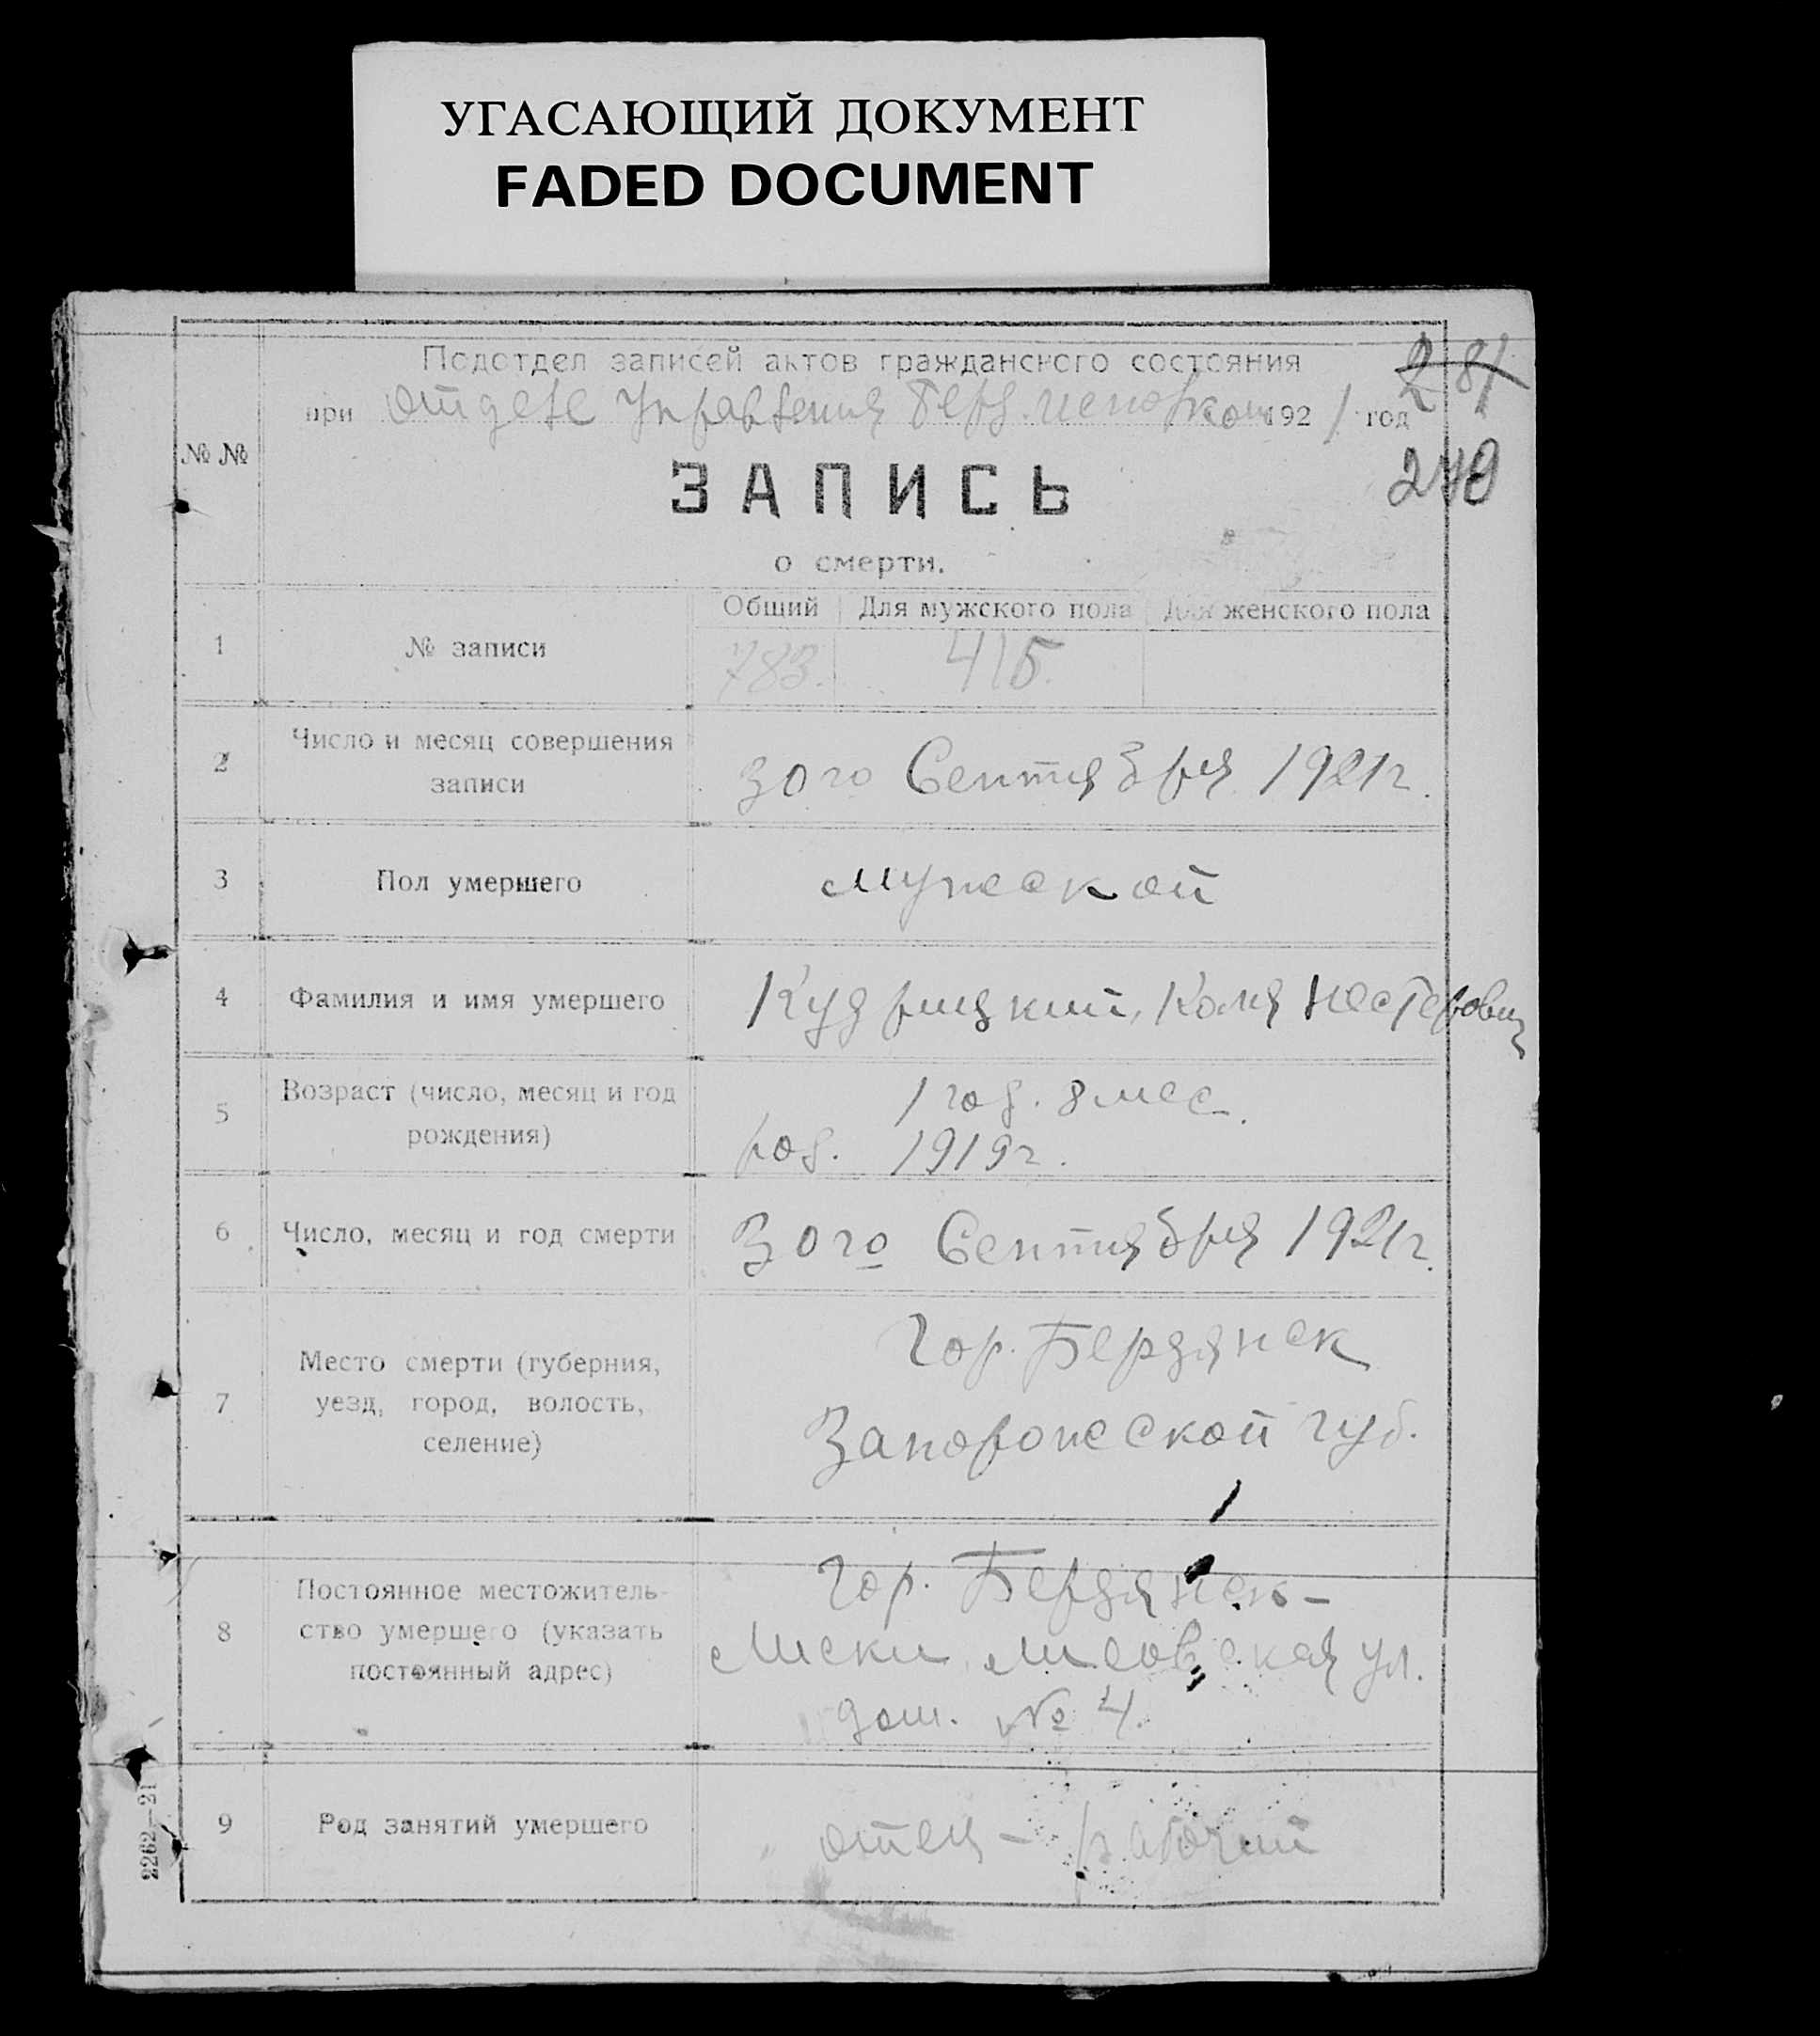 УГАСАЮЩИЙ ДОКУМЕНТ
FADED DOCUMENT
Подотдел записей актов гражданского состояния
281
при отделе Управления Берд. исполкома 1921 год
279
№ №
ЗАПИСЬ
о смерти.
Общий Для мужского пола Для женского пола
1 № записи 783. 415.
2 Число и месяц совершения
записи
30го Сентября 1921г.
3 Пол умершего мужской
4 Фамилия и имя умершего Кудрицкий, Коля Нестерович
5 Возраст (число, месяц и год
рождения)
1 год. 8 мес.
род. 1919г.
6 Число, месяц и год смерти 30го Сентября 1921г.
7 Место смерти (губерния,
уезд, город, волость,
селение)
Гор. Бердянск
Запорожской губ.
8 Постоянное местожитель-
ство умершего (указать
постоянный адрес)
Гор. Бердянск –
ул.
дом. № 4.
9 Род занятий умершего отец – рабочий
2262—21